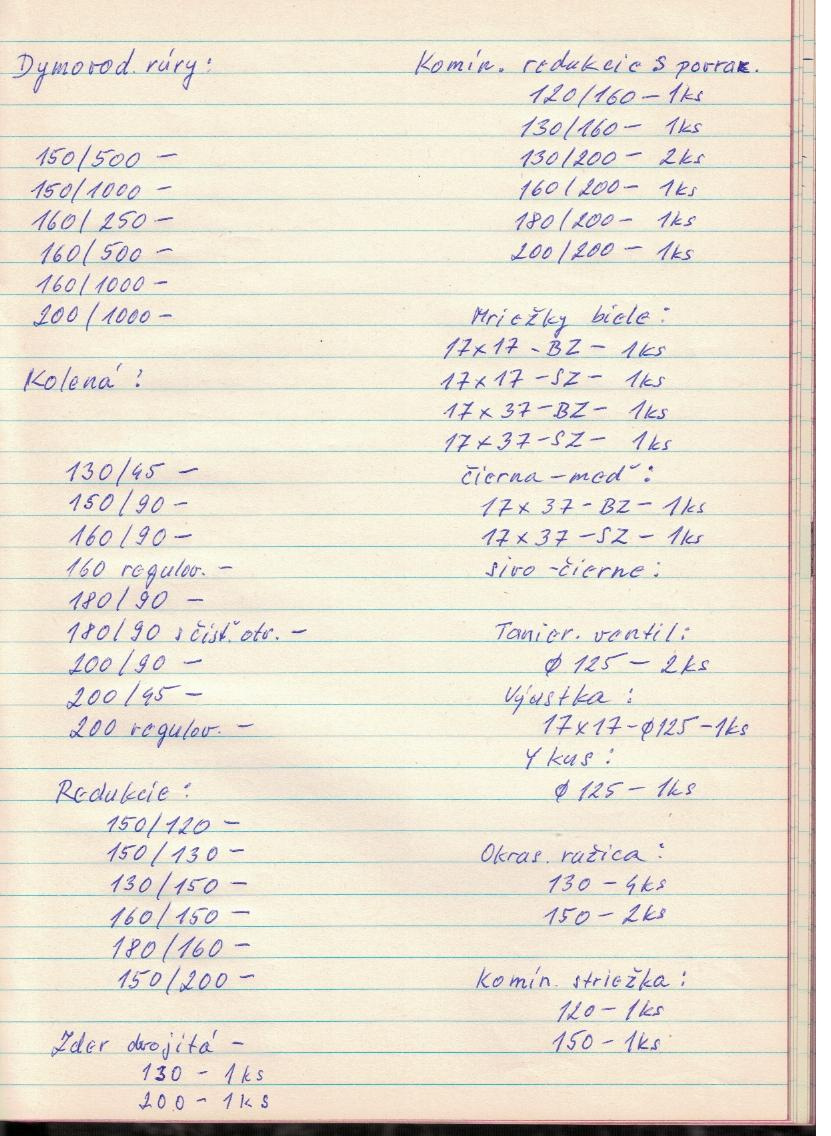 Dymovod. rúry:
150/500 –
150/1000 –
160/250 –
160/500 –
160/1000 –
200/1000 –
Kolená:
130/45 –
150/90 –
160/90 –
160 regulov. –
180/90 –
180/90 s čisť. otv. –
200/90 –
200/45 –
200 regulov. –
Redukcie:
150/120 –
150/130 –
130/150 –
160/150 –
180/160 –
150/200 –
Zder dvojitá –
130 – 1ks
200 – 1ks
Komín. redukcie s povraz.
120/160 – 1ks
130/160 – 1ks
130/200 – 2ks
160/200 – 1ks
180/200 – 1ks
200/200 – 1ks
Mriežky biele:
17x17 – BZ – 1ks
17x17 – SZ – 1ks
17x37 – BZ – 1ks
17x37 – SZ – 1ks
čierna – meď:
17x37 – BZ – 1ks
17x37 – SZ – 1ks
sivo – čierne:
Tanier. ventil:
φ 125 – 2ks
Výustka:
17x17 – φ125 – 1ks
Y kus:
φ 125 – 1ks
Okras. ružica:
130 – 4ks
150 – 2ks
Komín. striežka:
120 – 1ks
150 – 1ks